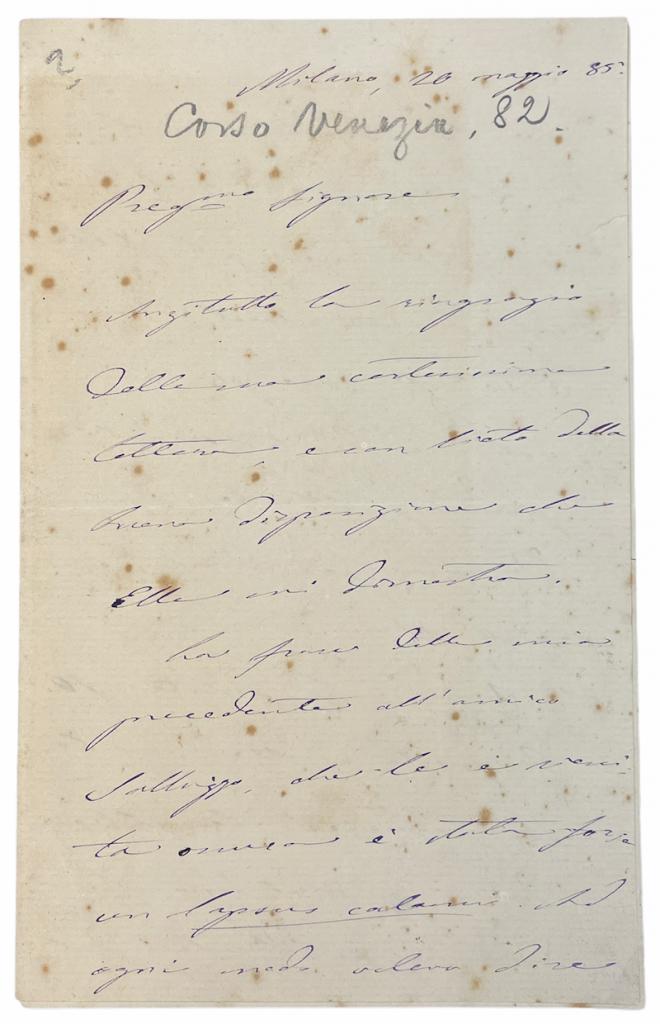 2,
Milano, 20 maggio 85.
Corso Venezia, 82.
Pregmo Signore
Anzitutto la ringrazio
della sua cortesissima
lettera, e son lieto della
buona disposizione che
Ella mi dimostra.
La frase della mia
precedente all'amico
Salluzzo, che le è riesci-
ta oscura è stata forse
un lapsus calami. Ad
ogni modo voleva dire